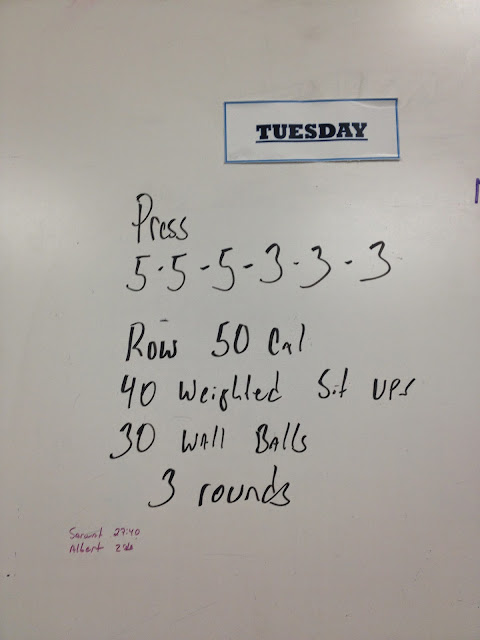 TUESDAY
Press
5-5-5-3-3-3
Row 50 Cal
40 Weighted Sit ups
30 Wall Balls
3 rounds
27:40
Albert